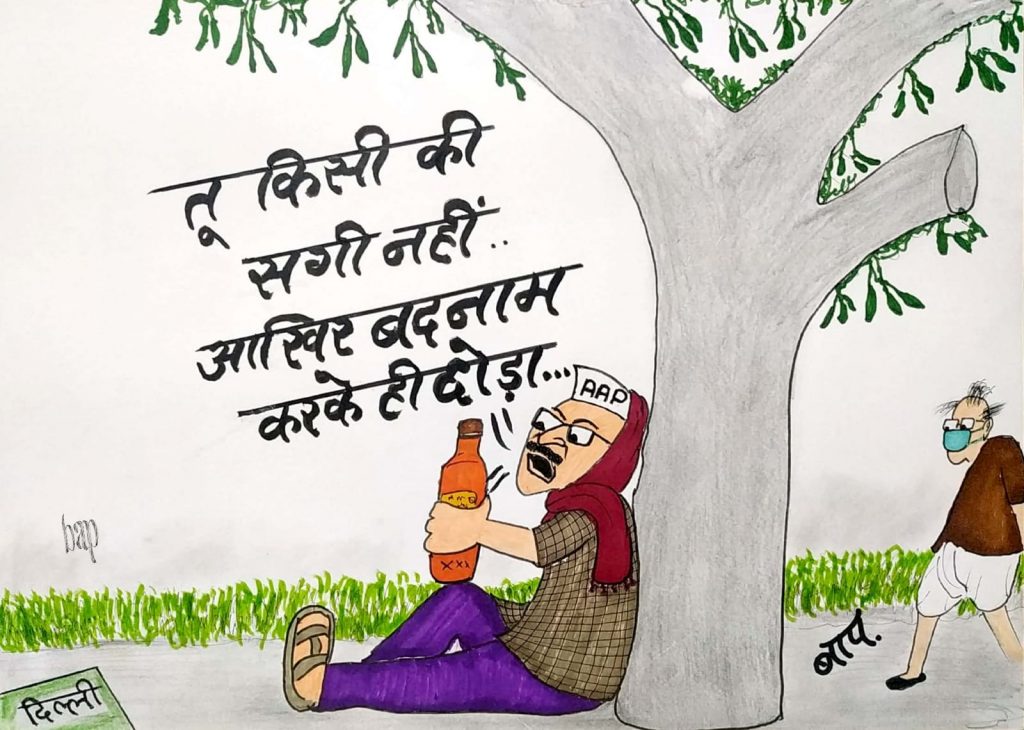 तू किसी की
सगी नहीं..
आखिर बदनाम
करके ही छोड़ा...
AAP
XXX
bap
बाप.
दिल्ली